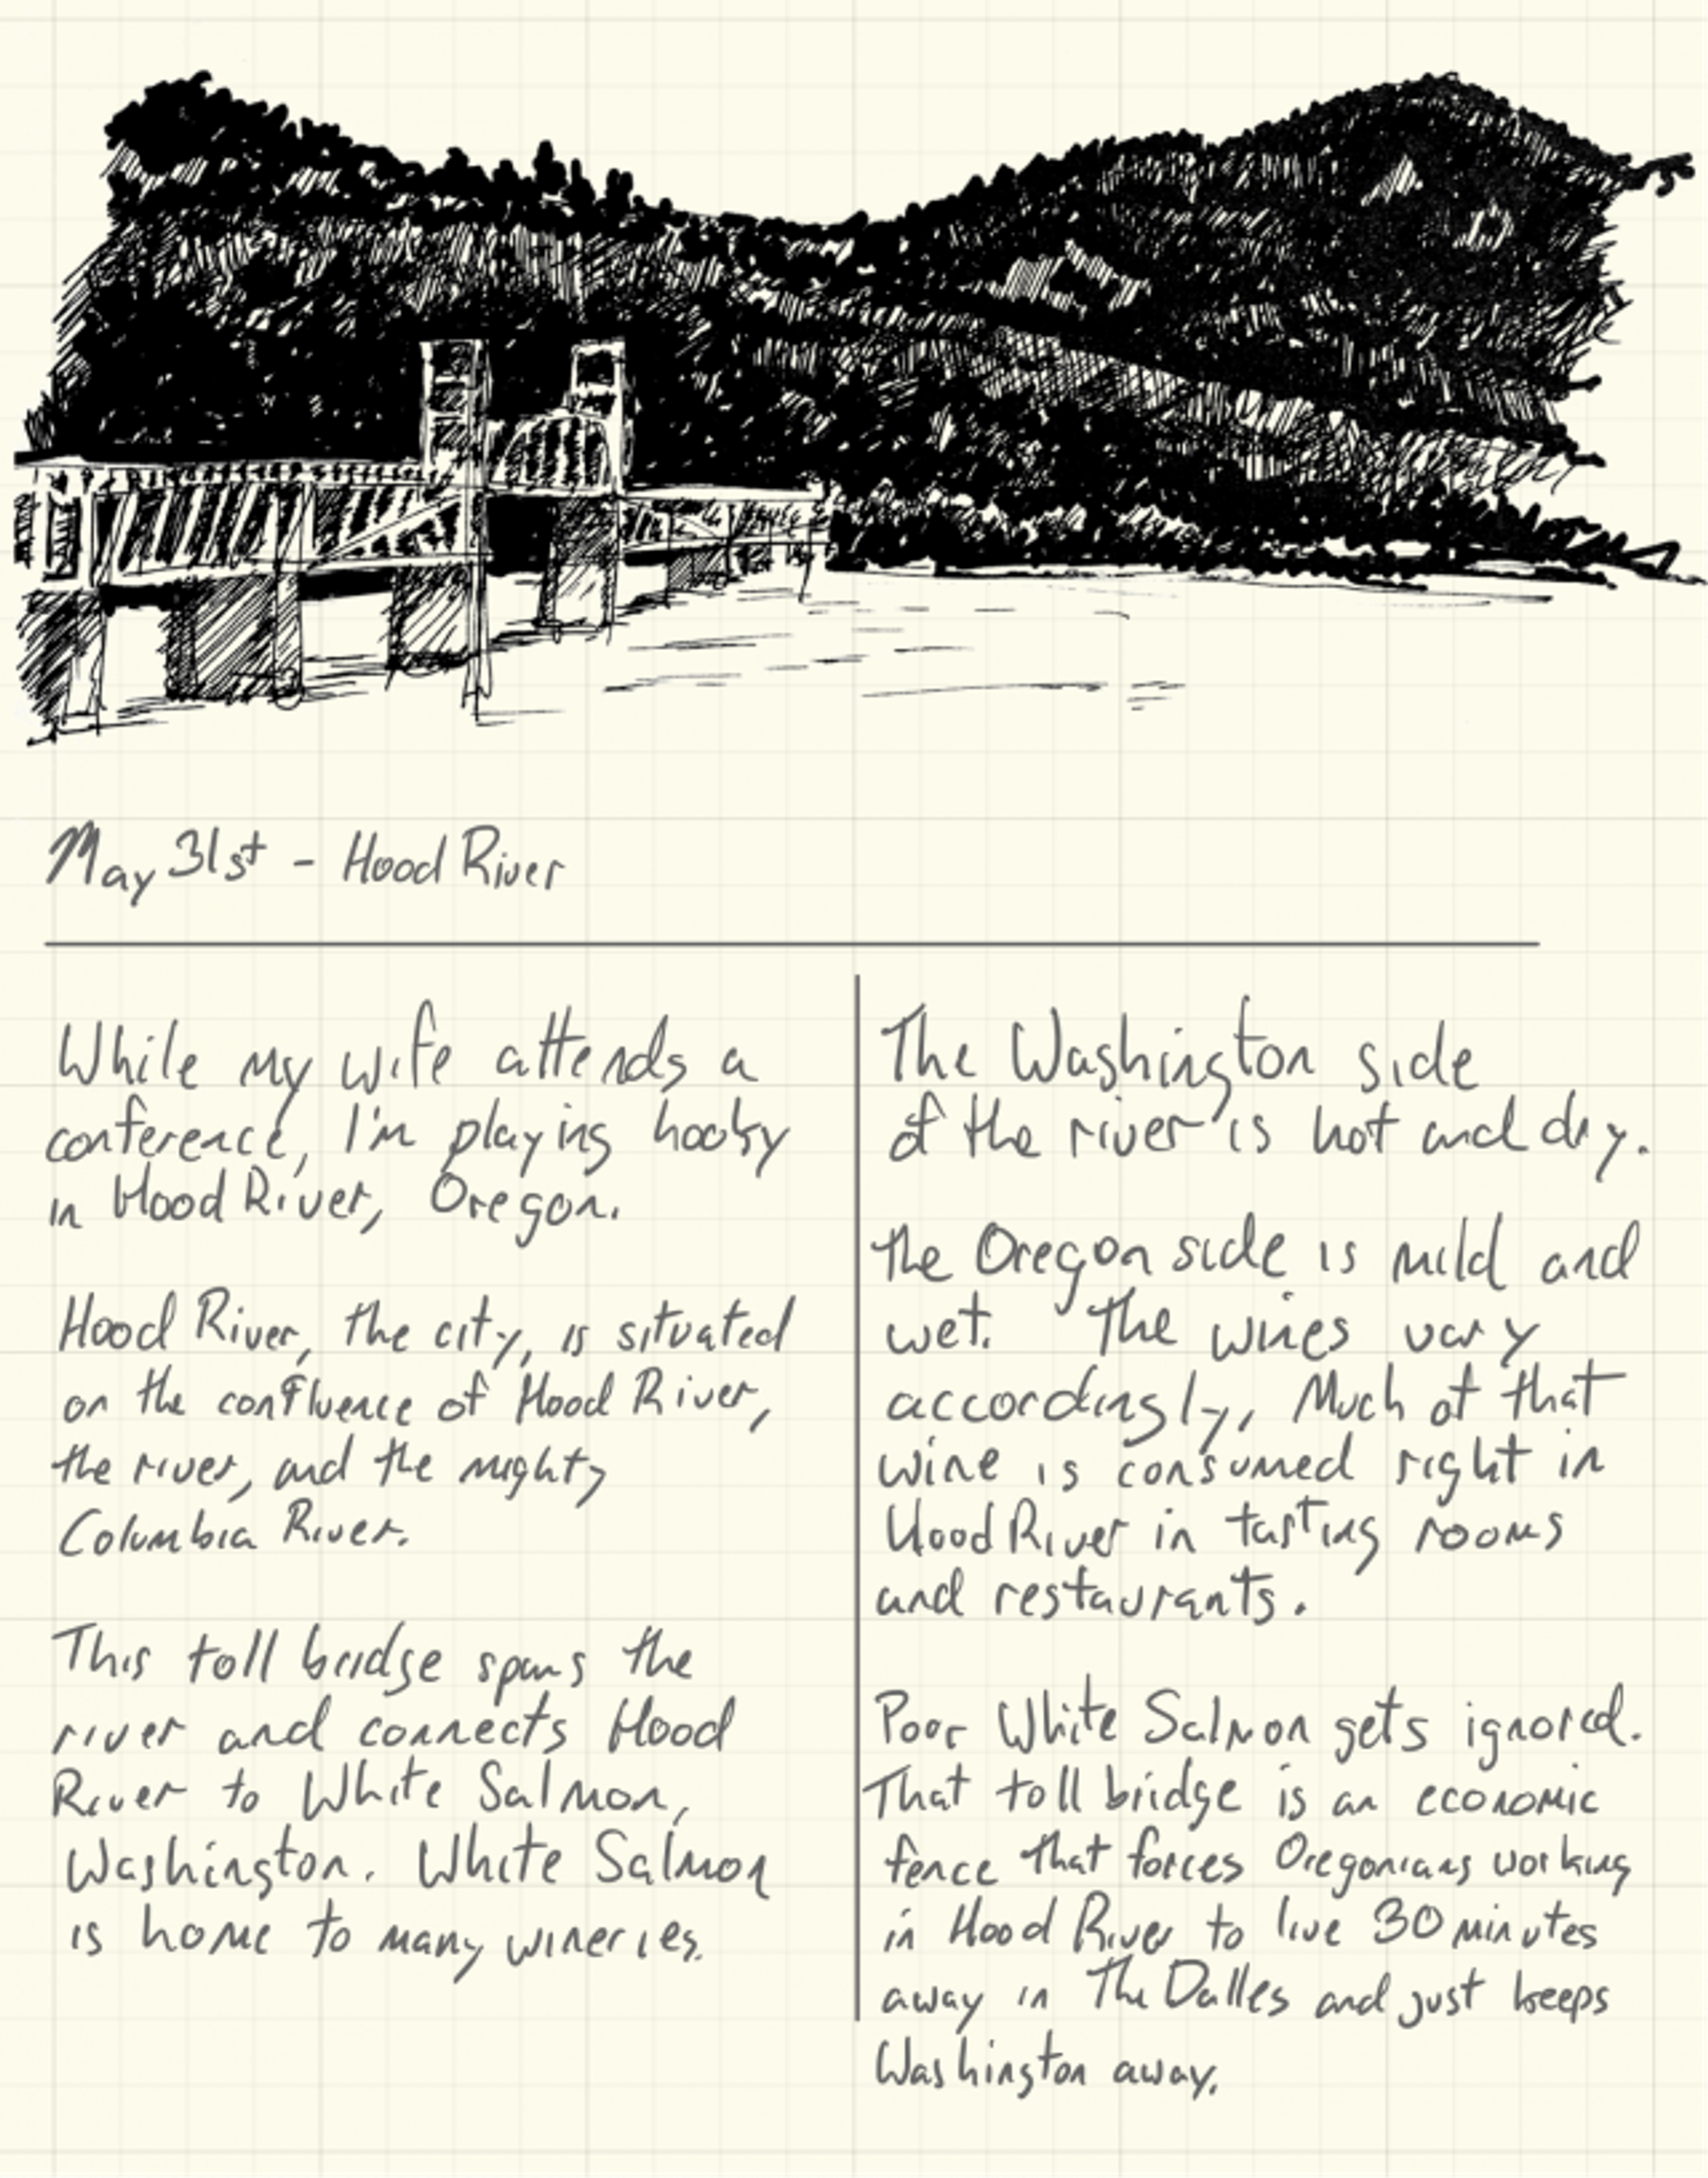 May 31st - Hood River
While my wife attends a
conference, I'm playing hooky
in Hood River, Oregon.
Hood River, the city, is situated
on the confluence of Hood River,
the river, and the mighty
Columbia River.
This toll bridge spans the
river and connects Hood
River to White Salmon,
Washington. White Salmon
is home to many wineries.
The Washington side
of the river is hot and dry.
the Oregon side is mild and
wet. The wines vary
accordingly, Much of that
wine is consumed right in
Hood River in tasting rooms
and restaurants.
Poor White Salmon gets ignored.
That toll bridge is an economic
fence that forces Oregonians working
in Hood River to live 30 minutes
away in The Dalles and just keeps
Washington away.